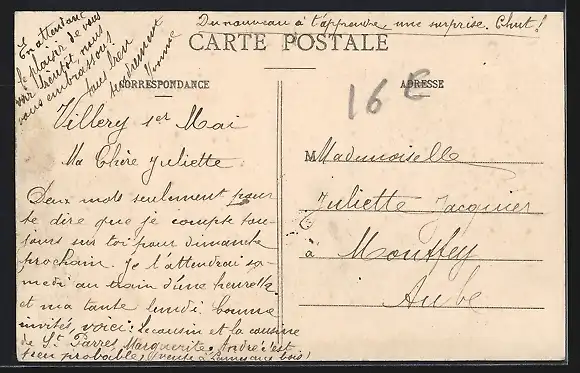 Du nouveau à t'apprendre, une surprise. Chut!
En attendant
le plaisir de vous
voir bientôt, nous
vous embrassons
tous bien
tendrement
Yvonne
CARTE POSTALE
CORRESPONDANCE
ADRESSE
16 E
Villery 1er Mai
Ma Chère Juliette
Deux mots seulement pour
te dire que je compte tou-
jours sur toi pour dimanche
prochain. Je t'attendrai sa-
medi au train d'une heure 1/2
et ma tante lundi. Comme
invités, voici: le cousin et la cousine
de St Parres, Marguerite, André c'est
peu probable, (veuse à bois)
M Mademoiselle
Juliette Jacquier
à Moussey
Aube